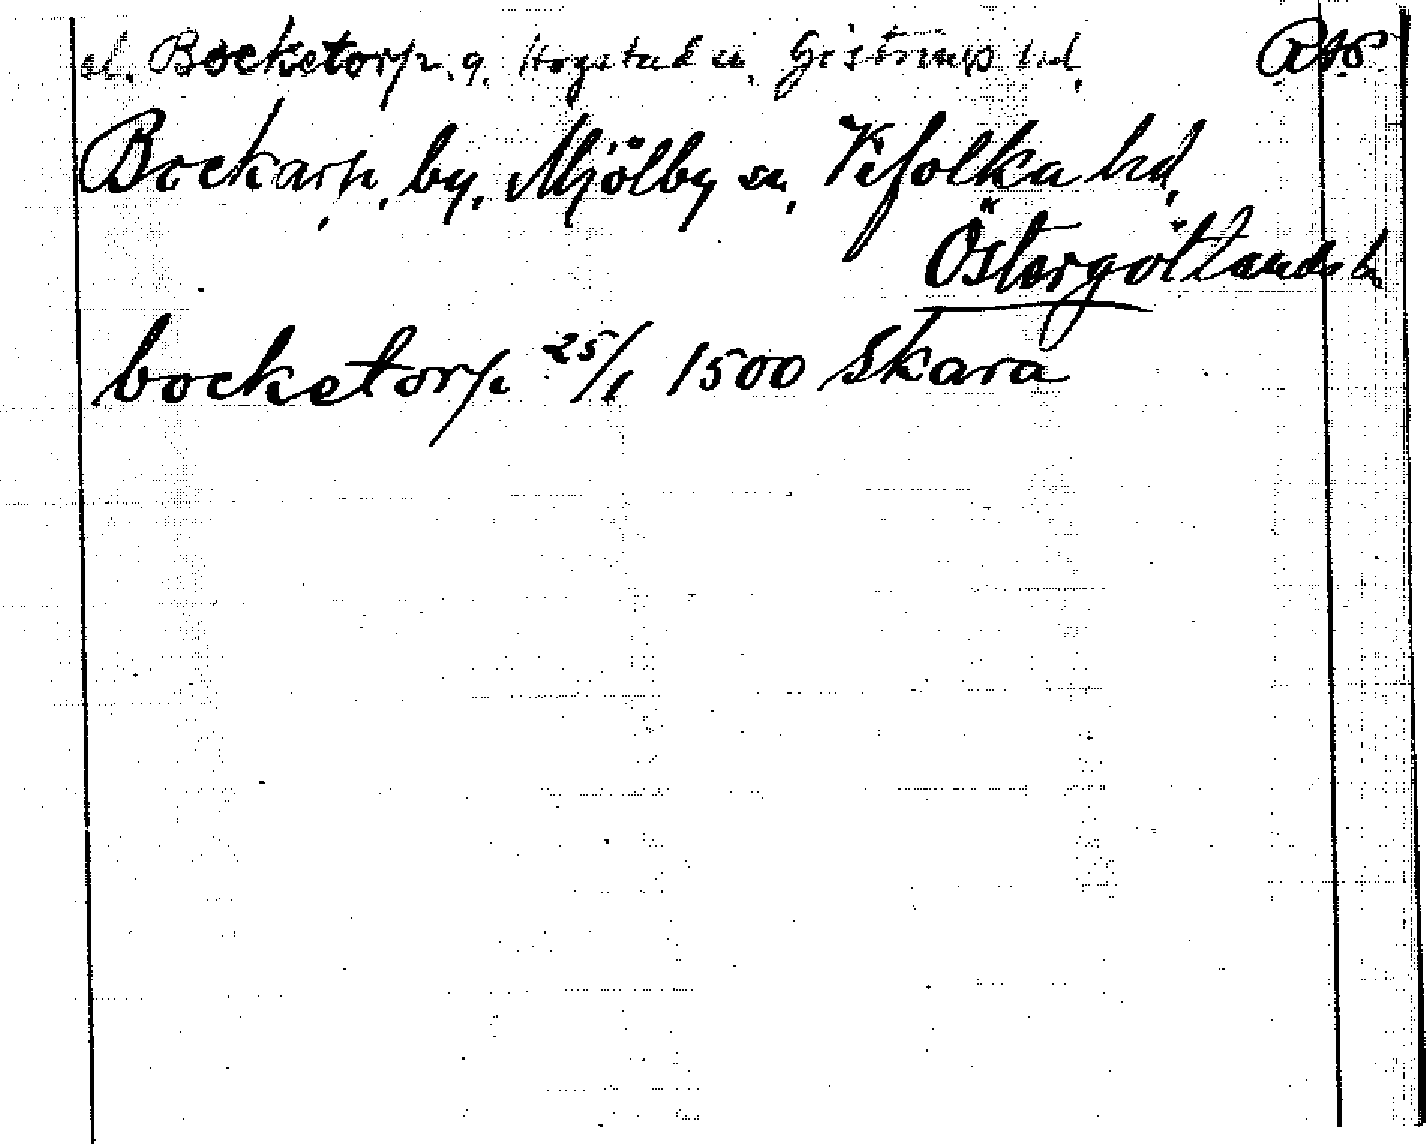 el. Bocketorp, g. Hogstad sn, Göstrings hd, RAP
Bockarp, by, Mjölby sn, Vifolka hd,
Östergötlands l.
bocketorp 25/1 1500 Skara